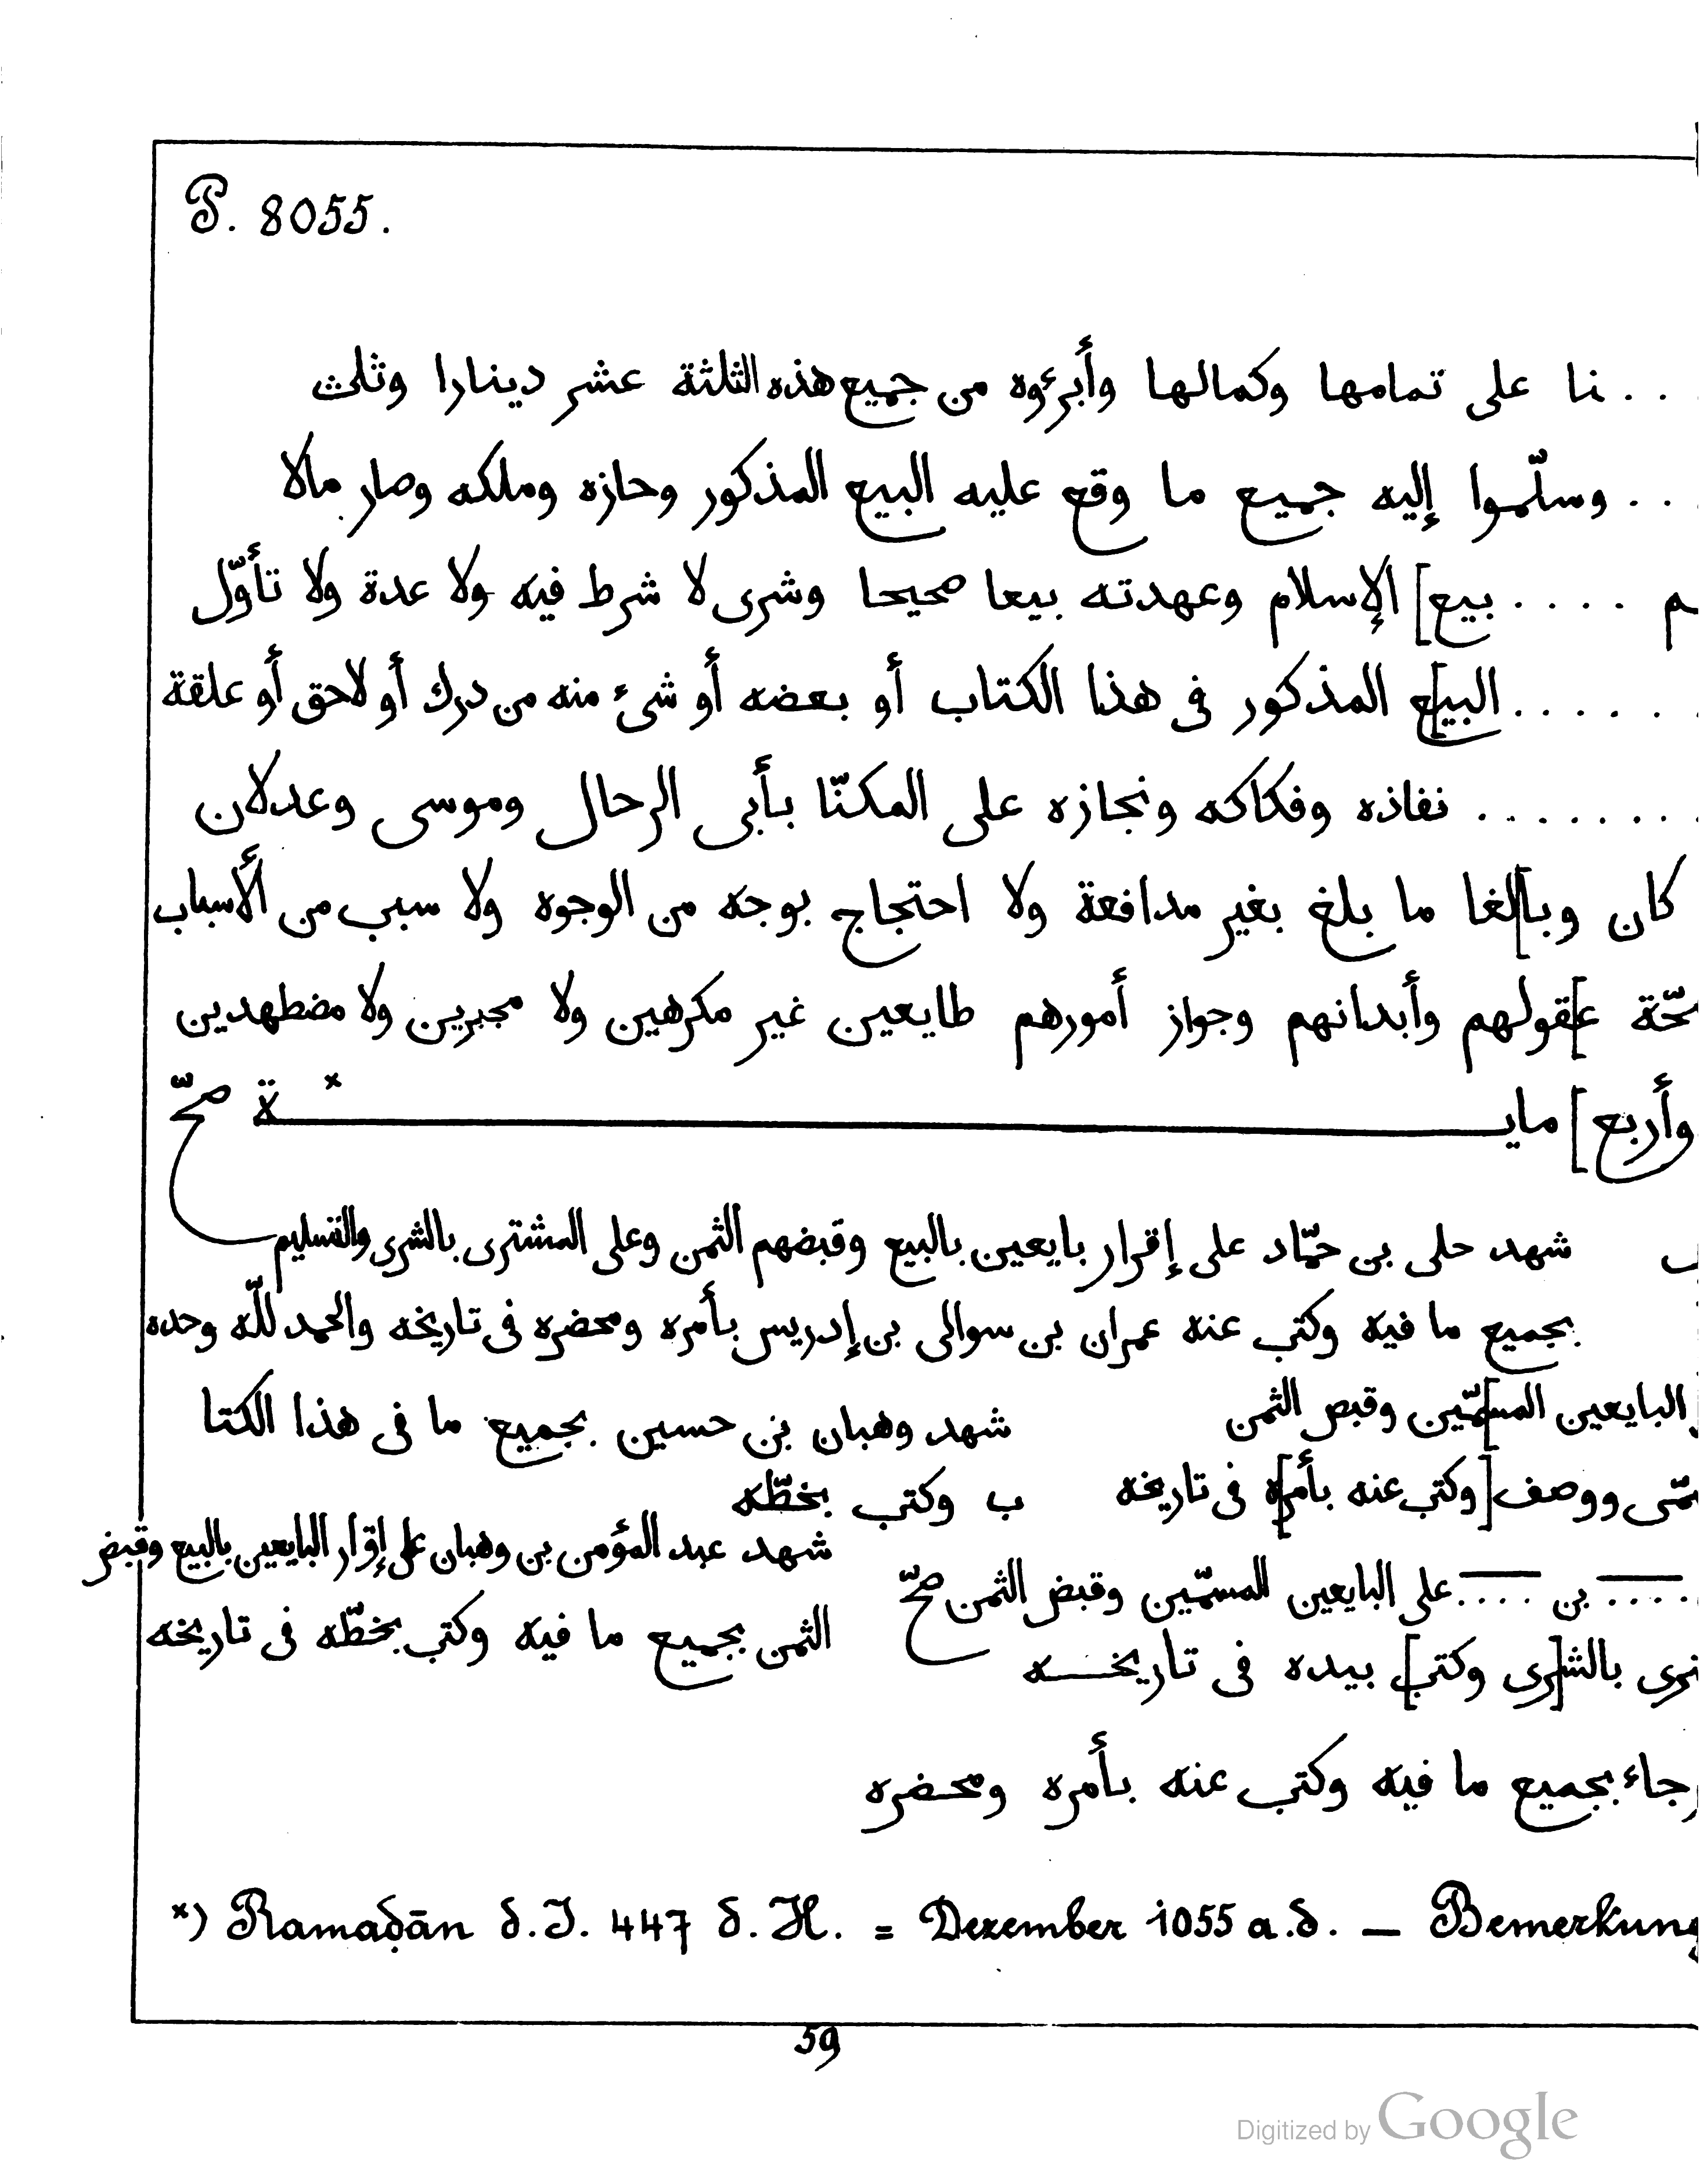 P. 8055.
. . . نا على تمامها وكمالها وأبرءوه من جميع هذه الثلثة عشر دينارا وثلث
. . . وسلّموا إليه جميع ما وقع عليه البيع المذكور وحازه وملكه وصار مالا
م . . . . بيع] الإسلام وعهدته بيعا صحيحا وشرى لا شرط فيه ولا عدة ولا تأوّل
. . . . . . البي]ع المذكور فى هذا الكتاب أو بعضه أو شىء منه من درك أو لاحق أو علقة
. . . . . . . . نفاذه وفكاكه ونجازه على المكنّا بأبى الرحال وموسى وعدلان
كان وبا]لغا ما بلغ بغير مدافعة ولا احتجاج بوجه من الوجوه ولا سبب من الأسباب
حّة ع]قولهم وأبدانهم وجواز أمورهم طايعين غير مكرهين ولا مجبرين ولا مضطهدين
وأربع] مايـــــة × صحّ
شهد حلى بن حمّاد على إقرار بايعين بالبيع وقبضهم الثمن وعلى المشترى بالشرى والتسليم
بجميع ما فيه وكتب عنه عمران بن سوالى بن إدريس بأمره ومحضره فى تاريخه والحمد للّه وحده
البايعين المس]مّين وقبض الثمن
شهد وهبان بن حسين بجميع ما فى هذا الكتا
مّى ووصف [وكتب عنه بأمر]ه فى تاريخه
ب وكتب بخطّه
شهد عبد المؤمن بن وهبان على إقرار البايعين بالبيع وقبض
. . . . بن . . . . على البايعين المسمّين وقبض الثمن صحّ
الثمن بجميع ما فيه وكتب بخطّه فى تاريخه
ترى بالش[رى وكتب] بيده فى تاريخـــه
جاء بجميع ما فيه وكتب عنه بأمره ومحضره
×) Ramaḍān d. J. 447 d. H. = Dezember 1055 a. d. — Bemerkung
59
Digitized by Google